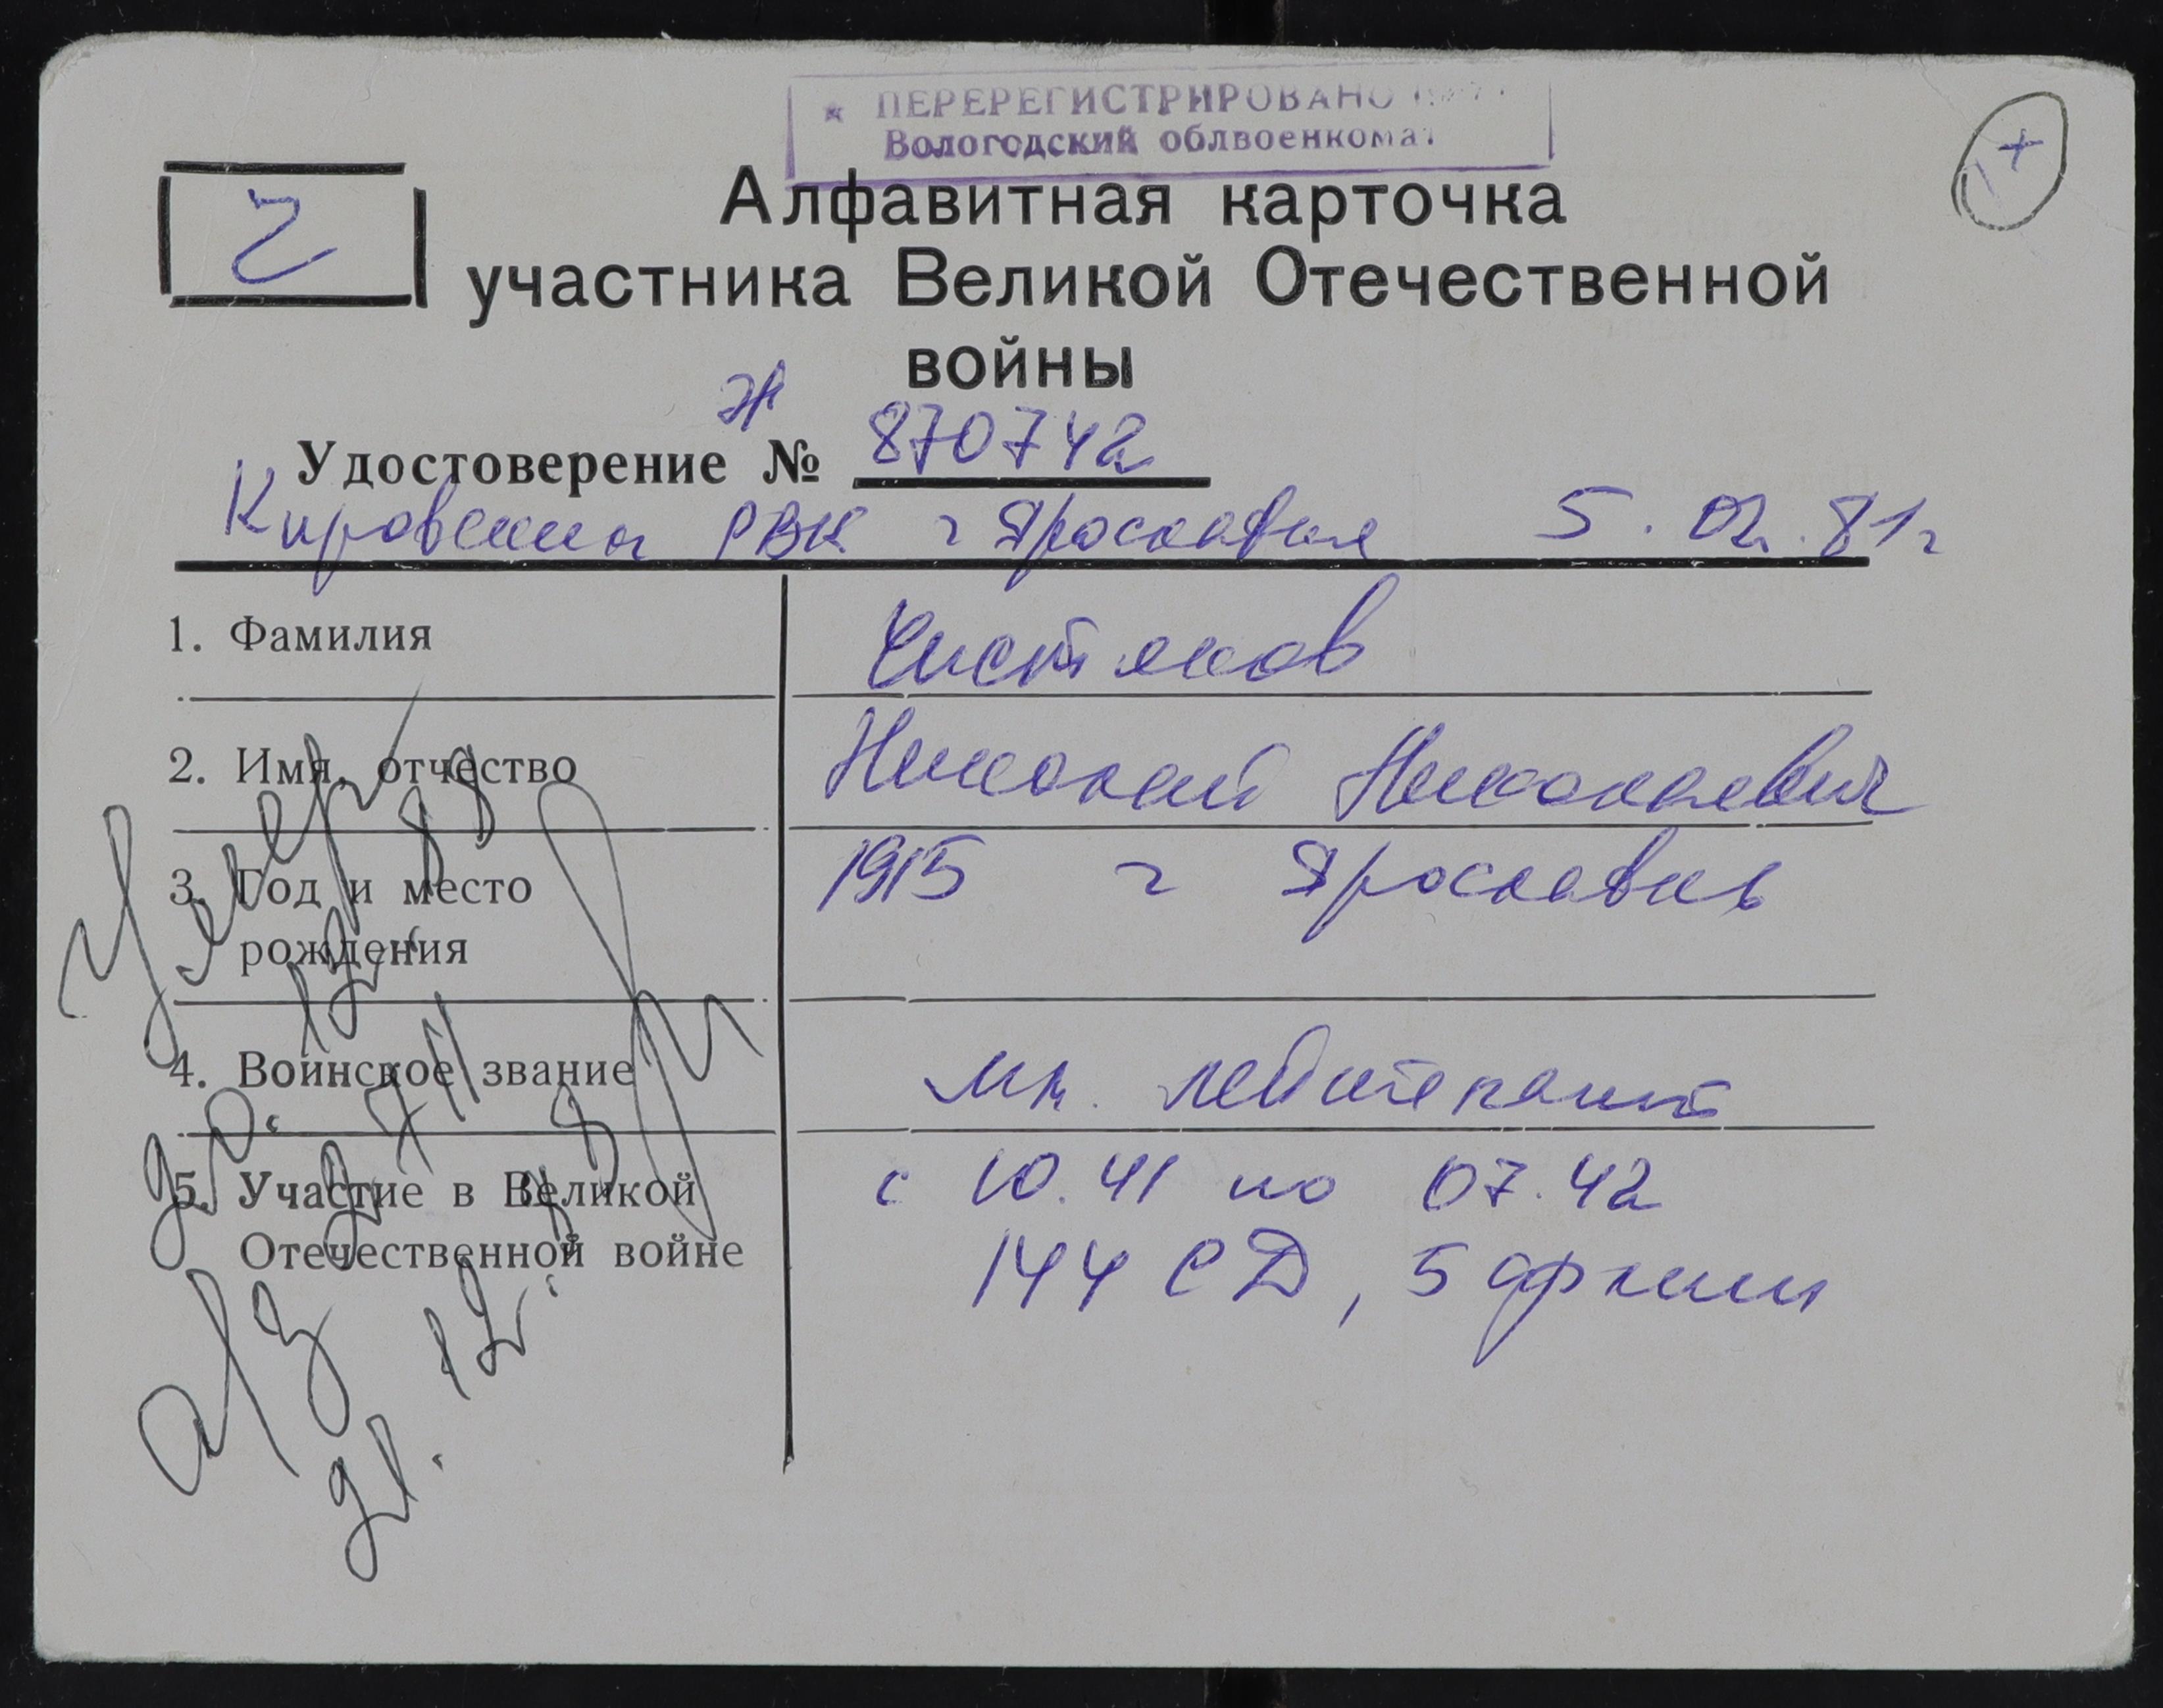 ★ ПЕРЕРЕГИСТРИРОВАНО
Вологодский облвоенкомат
+
Ч
Алфавитная карточка
участника Великой Отечественной
войны
Ж
Удостоверение № 870742
Кировским РВК г Ярославля 5.02.81г
1. Фамилия Чистяков
2. Имя, отчество Николай Николаевич
3. Год и место 1915 г Ярославль
рождения
4. Воинское звание мл. лейтенант
5. Участие в Великой с 10.41 по 07.42
Отечественной войне 144 СД, 5 армии
Умер